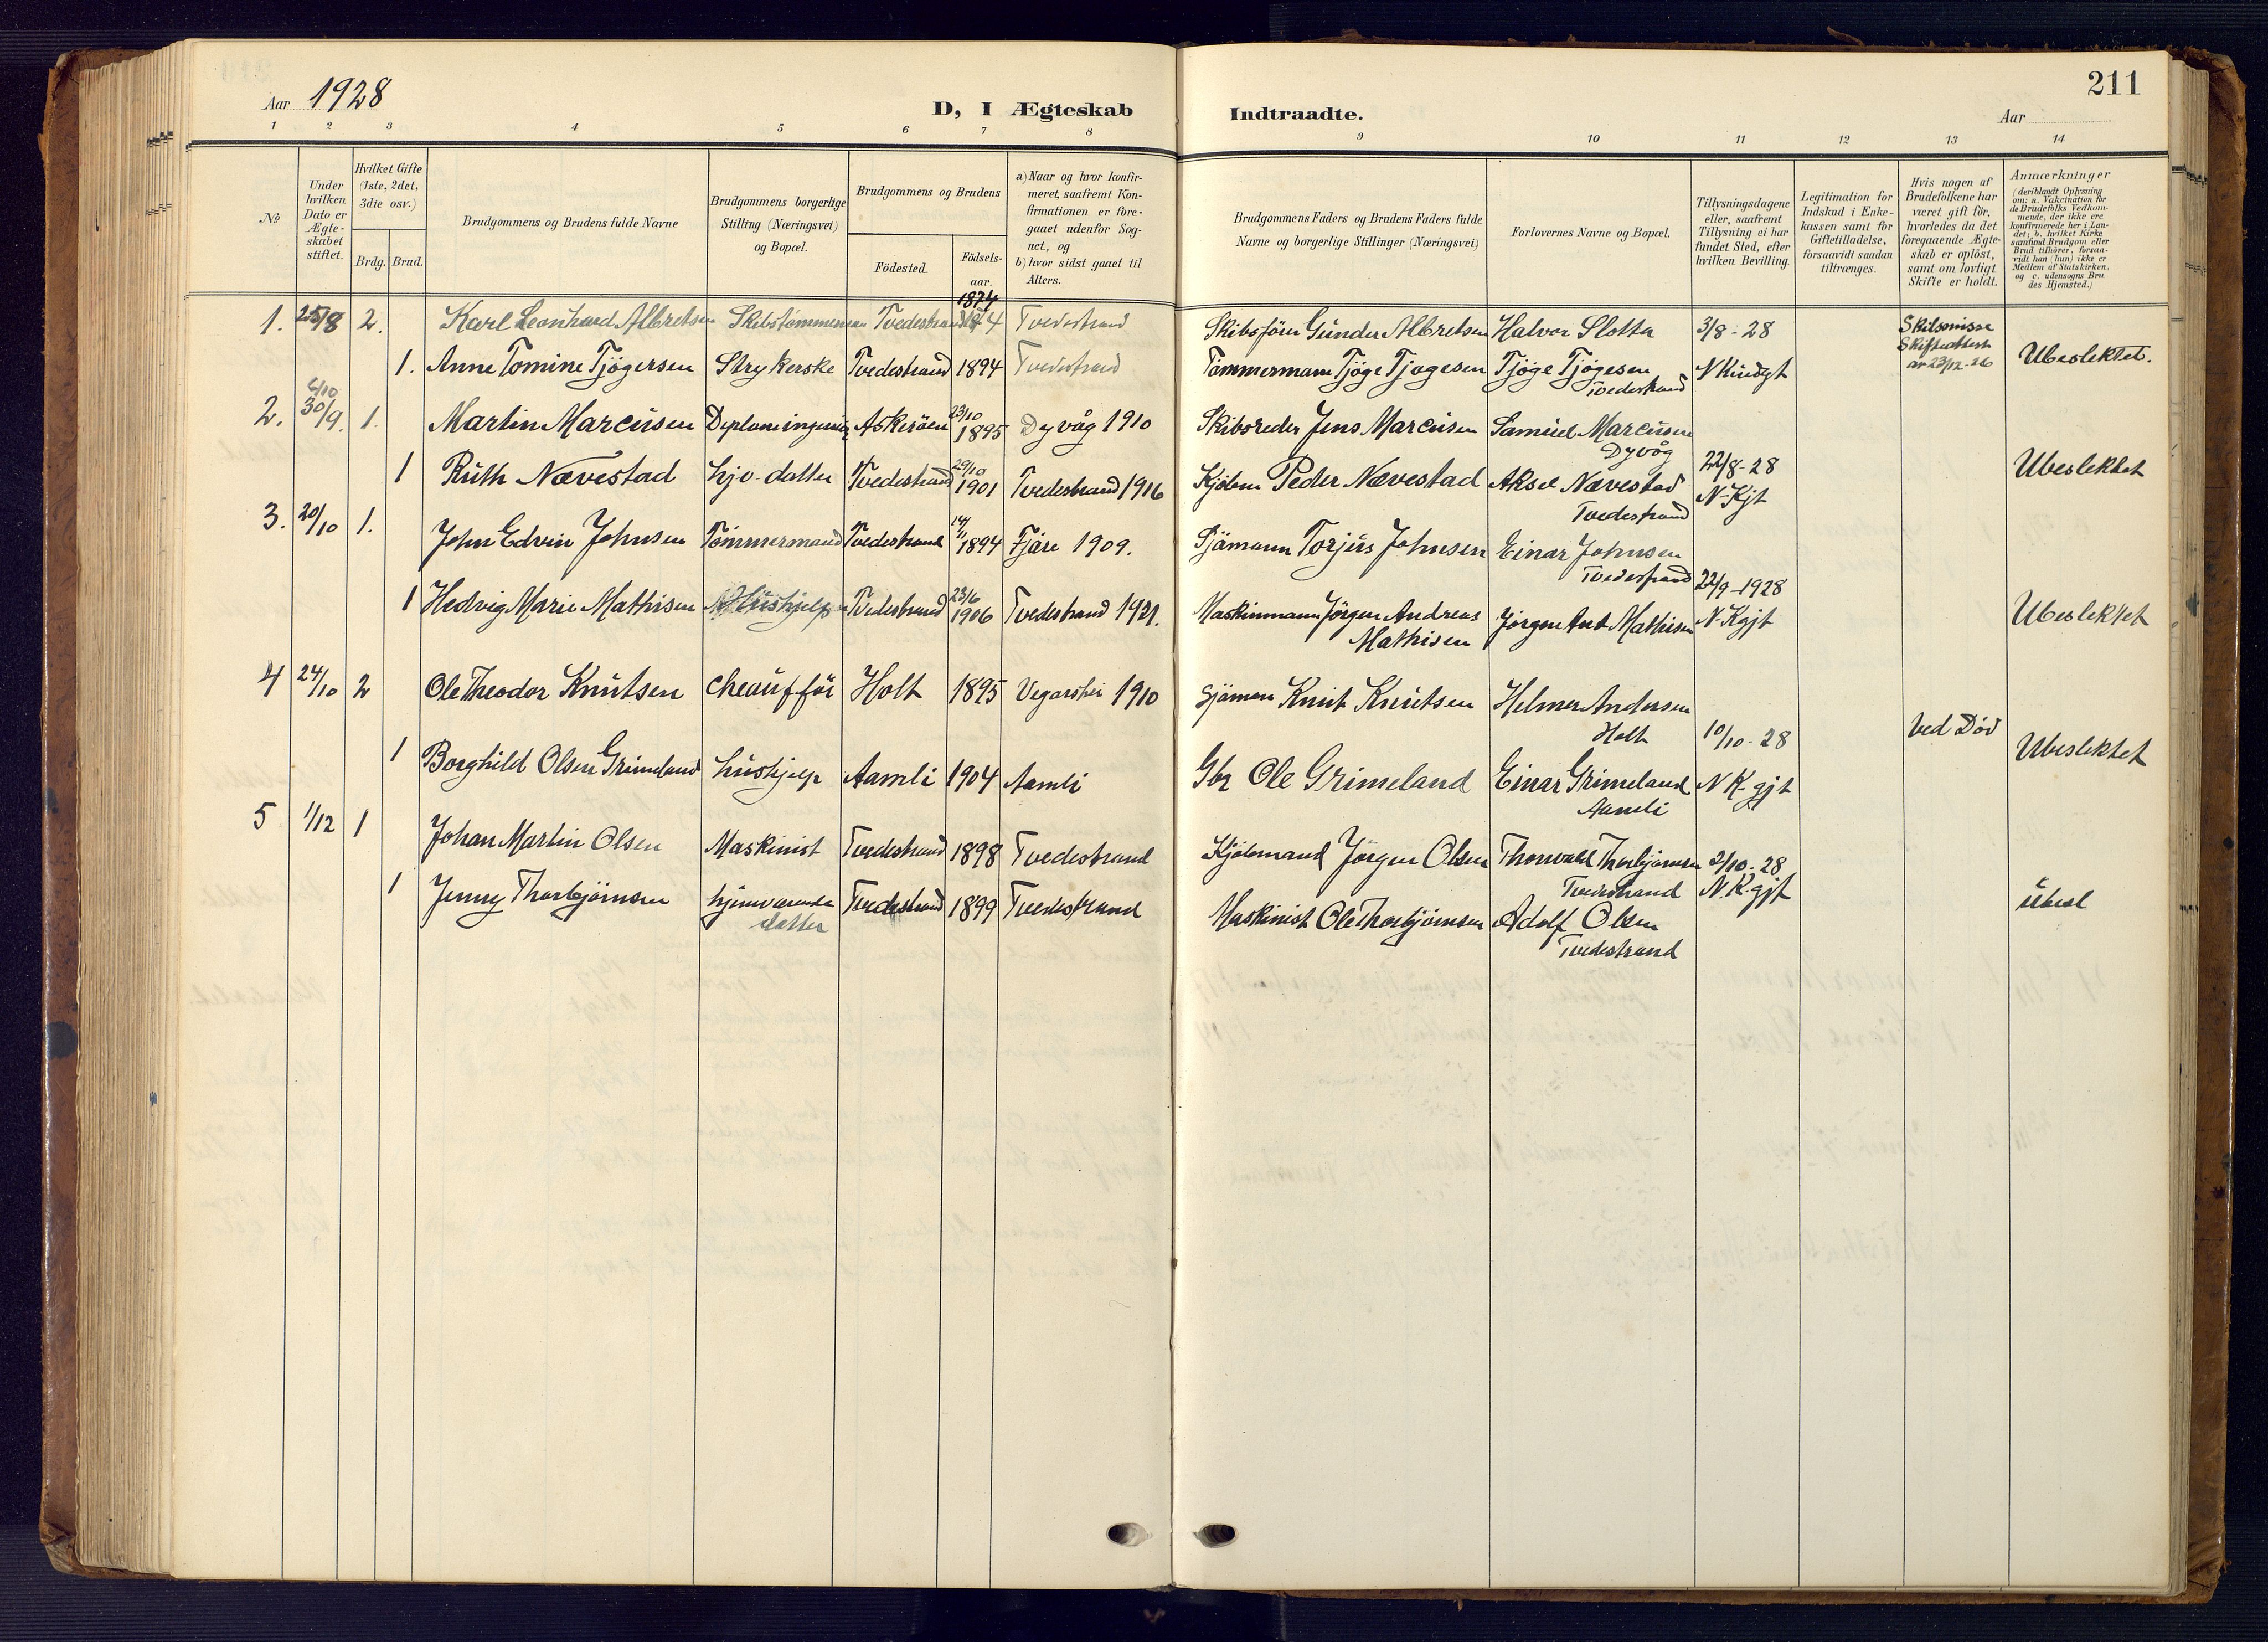 Aar 1928
D, I Ægteskab
Indtraadte.
Aar
211
1 2 3 4 5 6 7 8 9 10 11 12 13 14
No
Under hvilken Dato er Ægteskabet stiftet.
Hvilket Gifte (1ste, 2det, 3die osv.)
Brdg. Brud.
Brudgommens og Brudens fulde Navne
Brudgommens borgerlige Stilling (Næringsvei) og Bopæl.
Brudgommens og Brudens
Födested.
Födsels-aar.
a) Naar og hvor konfirmeret, saafremt Konfirmationen er foregaaet udenfor Sognet, og
b) hvor sidst gaaet til Alters.
Brudgommens Faders og Brudens Faders fulde Navne og borgerlige Stillinger (Næringsvei)
Forlovernes Navne og Bopæl.
Tillysningsdagene eller, saafremt Tillysning ei har fundet Sted, efter hvilken Bevilling.
Legitimation for Indskud i Enkekassen samt for Giftetilladelse, forsaavidt saadan tiltrænges.
Hvis nogen af Brudefolkene har været gift för, hvorledes da det foregaaende Ægteskab er oplöst, samt om lovligt Skifte er holdt.
Anmærkninger
(deriblandt Oplysning om: a. Vakcination for de Brudefolks Vedkommende, der ikke ere konfirmerede her i Landet; b. hvilket Kirkesamfund Brudgom eller Brud tilhörer, forsaavidt han (hun) ikke er Medlem af Statskirken. og c. udensogns Brudes Hjemsted.)
1. 25/8 2. Karl Leonhard Albretsen Skibstømmermann Tvedestrand 1874 Tvedestrand Skibsförer Gunder Albretsen Halvor Slotta 3/8 - 28 Skilsmisse
Skifteattest
av 23/12-26
1. Anne Tomine Tjögersen Strykerske Tvedestrand 1894 Tvedestrand Tømmermann Tjöge Tjøgesen Tjöge Tjögesen N Kundgt Ubeslektet.
Tvedestrand
6/10
2. 30/9. 1. Martin Marcusen Diplomingeniör Askeröen 23/10 1895 Dyvåg 1910 Skibsreder Jens Marcusen Samuel Marcusen
Dyvåg
1 Ruth Nævestad hjv. datter Tvedestrand 29/10 1901 Tvedestrand 1916 Kjöbm Peder Nævestad Aksel Nævestad 22/8-28 Ubeslektet
Tvedestrand N-Kjt
3. 20/10 1. John Edvin Johnsen Tømmermand Tvedestrand 14/11 1894 Fjäre 1909. Sjömann Torjus Johnsen Einar Johnsen
Tvedestrand 22/9-1928
1 Hedvig Marie Mathisen Hushjelp Tvedestrand 23/6 1906 Tvedestrand 1921. Maskinmann Jörgen Andreas Jörgen And Mathisen N-Kgjt Ubeslektet
Mathisen
4 24/10 2 Ole Theodor Knutsen Cheauffør Holt 1895 Vegarshei 1910 Sjömann Knut Knutsen Helmer Andersen
Holt 10/10-28 Ved Död
1 Borghild Olsen Grimeland hushjelp Aamli 1904 Aamli Gbr Ole Grimeland Einar Grimeland N K-gjt Ubeslektet
Aamli
5 1/12 1 Johan Martin Olsen Maskinist Tvedestrand 1898 Tvedestrand Kjöbmand Jörgen Olsen Thorvald Thorbjörnsen 2/10-28
Tvedestrand N.K.gjt
1 Jenny Thorbjörnsen hjemværende Tvedestrand 1899 Tvedestrand Maskinist Ole Thorbjörnsen Adolf Olsen Ubesl
datter Tvedestrand